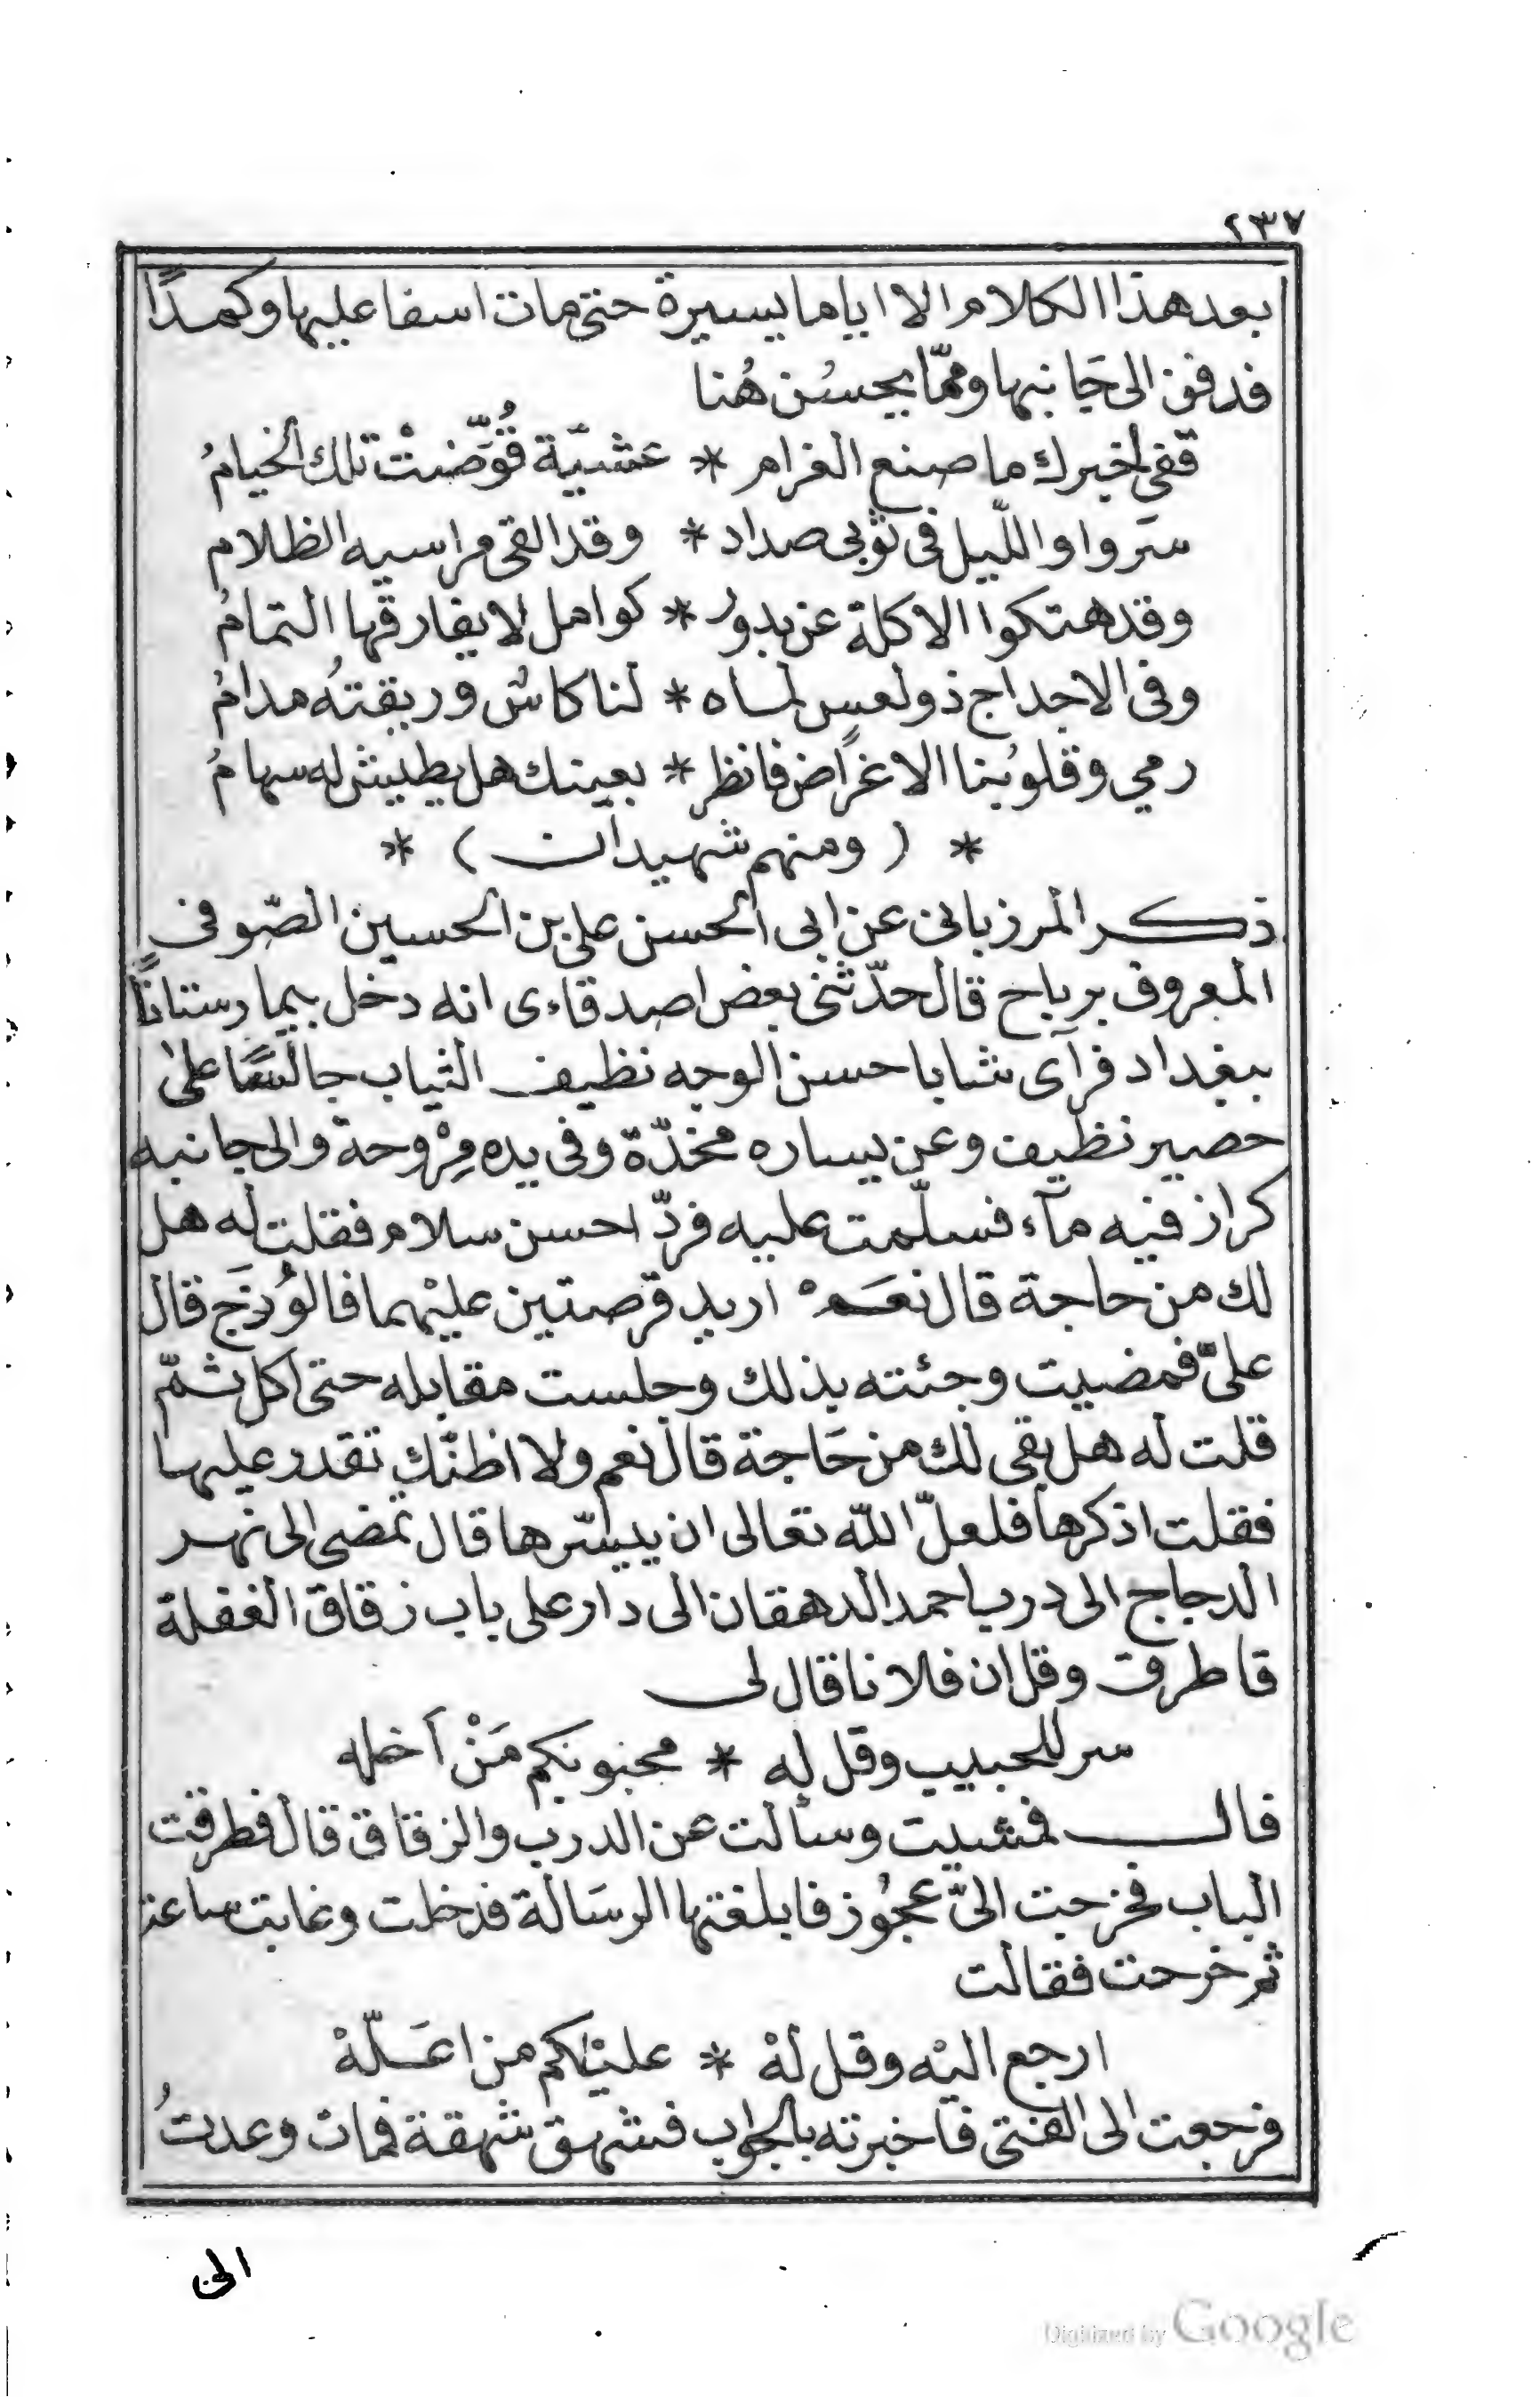 ٢٣٧
بعد هذا الكلام الا اياما يسيرة حتى مات اسفا عليها وكمدًا
فدفن الى جَانبها وممّا يحسُن هُنا
قفى اخبرك ما صنع الغرام * عَشيّة قُوّضَتْ تلك الخيامُ
سَروا واللّيل فى ثوبى صداد * وقد القى مراسيه الظلام
وقد هتكوا الاكلة عن بدور * كوامل لا يفارقها التمامُ
وفى الاحداج ذو لعسٍ لماه * لنا كاسٌ وريقتهُ مدامُ
رمى وقلوبُنا الاغراض فانظر * بعينك هل يطيش له سهامُ
* ( ومنهم شهيدان ) *
ذكر المرزبانى عن ابى الحسن على بن الحسين الصّوفى
المعروف برباح قال حدّثنى بعض اصدقاءى انه دخل بيمارستانًا
ببغداد فرآى شابا حسن الوجه نظيف الثياب جالسًا على
حصير نظيف وعن يساره مخدّة وفى يده مِرْوحة والى جانبه
كراز فيه مآء فسلّمت عليه فردّ احسن سلام فقلت له هل
لك من حاجة قال نعَمْ اريد قرصتين عليْهما فالوُذَج قال
علىّ فمضيت وجئته بذلك وجلست مقابله حتى اكل ثمّ
قلت له هل بقى لك من حَاجة قال نعم ولا اظنّك تقدر عليها
فقلت اذكرها فلعلّ اللّه تعالى ان ييسّرها قال تمضى الى نهر
الدجاج الى درب احمد الدهقان الى دار على باب زقاق الغفلة
فاطرق وقل ان فلانا قال لى
سر للحبيب وقل له * مجنونكم مَنْ اَخله
قال فمشيت وسألت عن الدرب والزقاق قال فطرقت
الباب فخرجت الىّ عجُوز فابلغتها الرسَالة فدخلت وغابت ساعة
ثم خرجت فقالت
ارجع اليْه وقل لهْ * عليْلكم من اعَلّهْ
فرجعت الى الفتى فاخبرته بالجواب فشهق شهقة فمات وعدتُ
الى
Digitized by Google